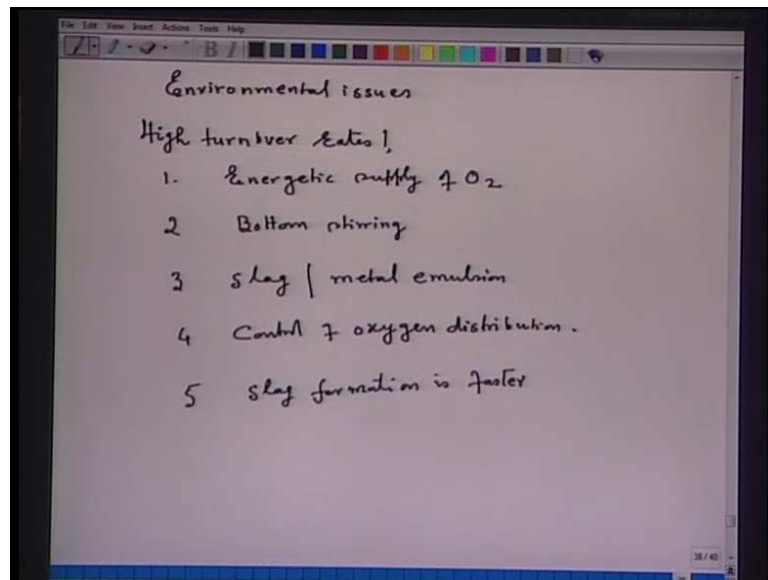 File Edit View Insert Actions Tools Help
B I
Environmental issues
High turnover rates!
1. Energetic supply of O2
2 Bottom stirring
3 slag | metal emulsion
4 Control of oxygen distribution.
5 Slag formation is faster
38/40